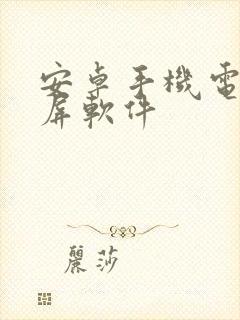 安卓手機電
屏軟件
麗莎